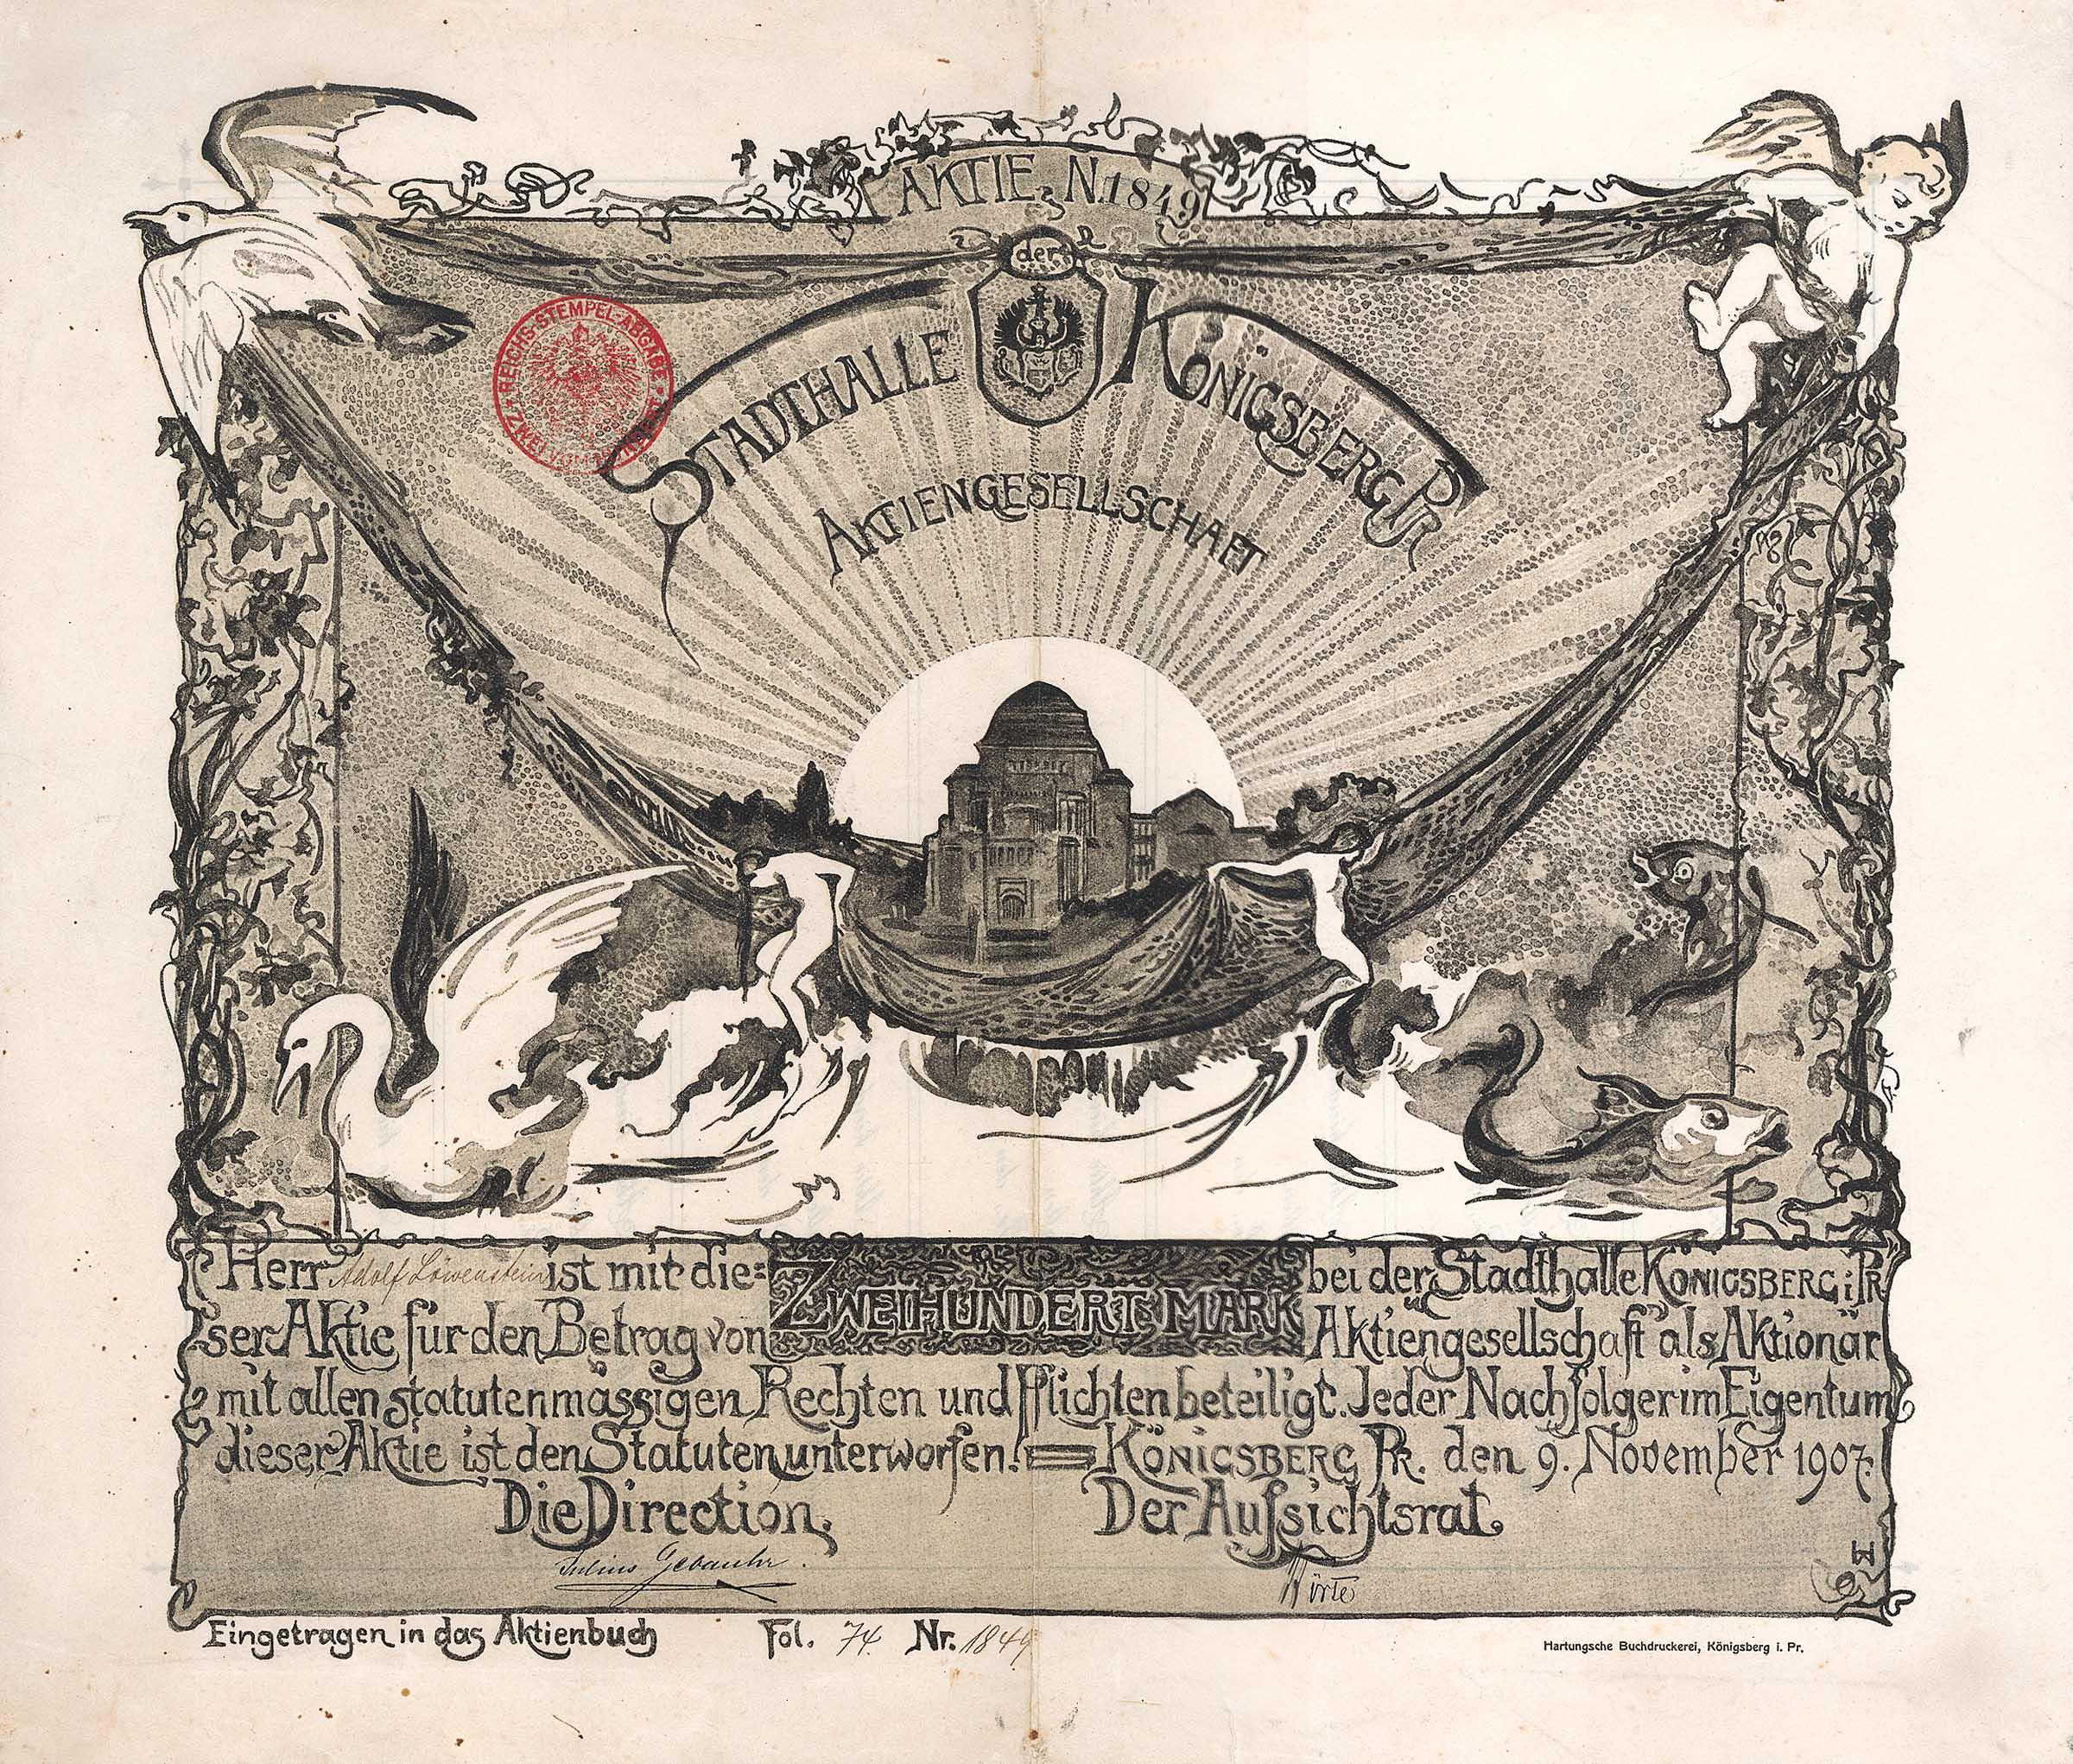 AKTIE N. 1849
der
STADTHALLE KÖNIGSBERG Pr
AKTIENGESELLSCHAFT
REICHS-STEMPEL-ABGABE
ZWEI VOM HUNDERT
Herr Adolf Löwenstein ist mit die= ZWEIHUNDERT MARK bei der Stadthalle KÖNIGSBERG i/PR
ser Aktie für den Betrag von Aktiengesellschaft als Aktionär
mit allen statutenmässigen Rechten und Pflichten beteiligt. Jeder Nachfolger im Eigentum
dieser Aktie ist den Statuten unterworfen. = KÖNIGSBERG PR. den 9. November 1907.
Die Direction. Der Aufsichtsrat.
Julius Gebauhr.
Eingetragen in das Aktienbuch Fol. 74. Nr. 1849
Hartungsche Buchdruckerei, Königsberg i. Pr.